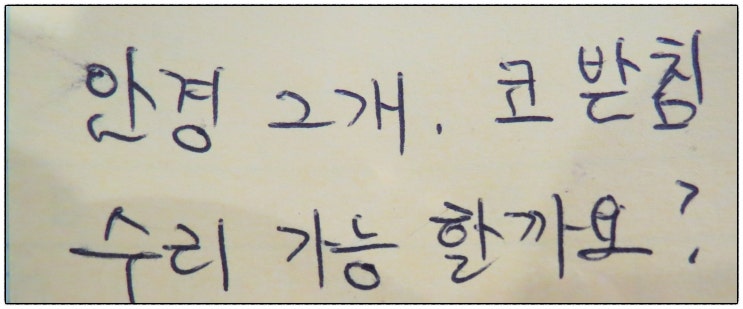 안경 2개. 코 받침
수리 가능 할까요?